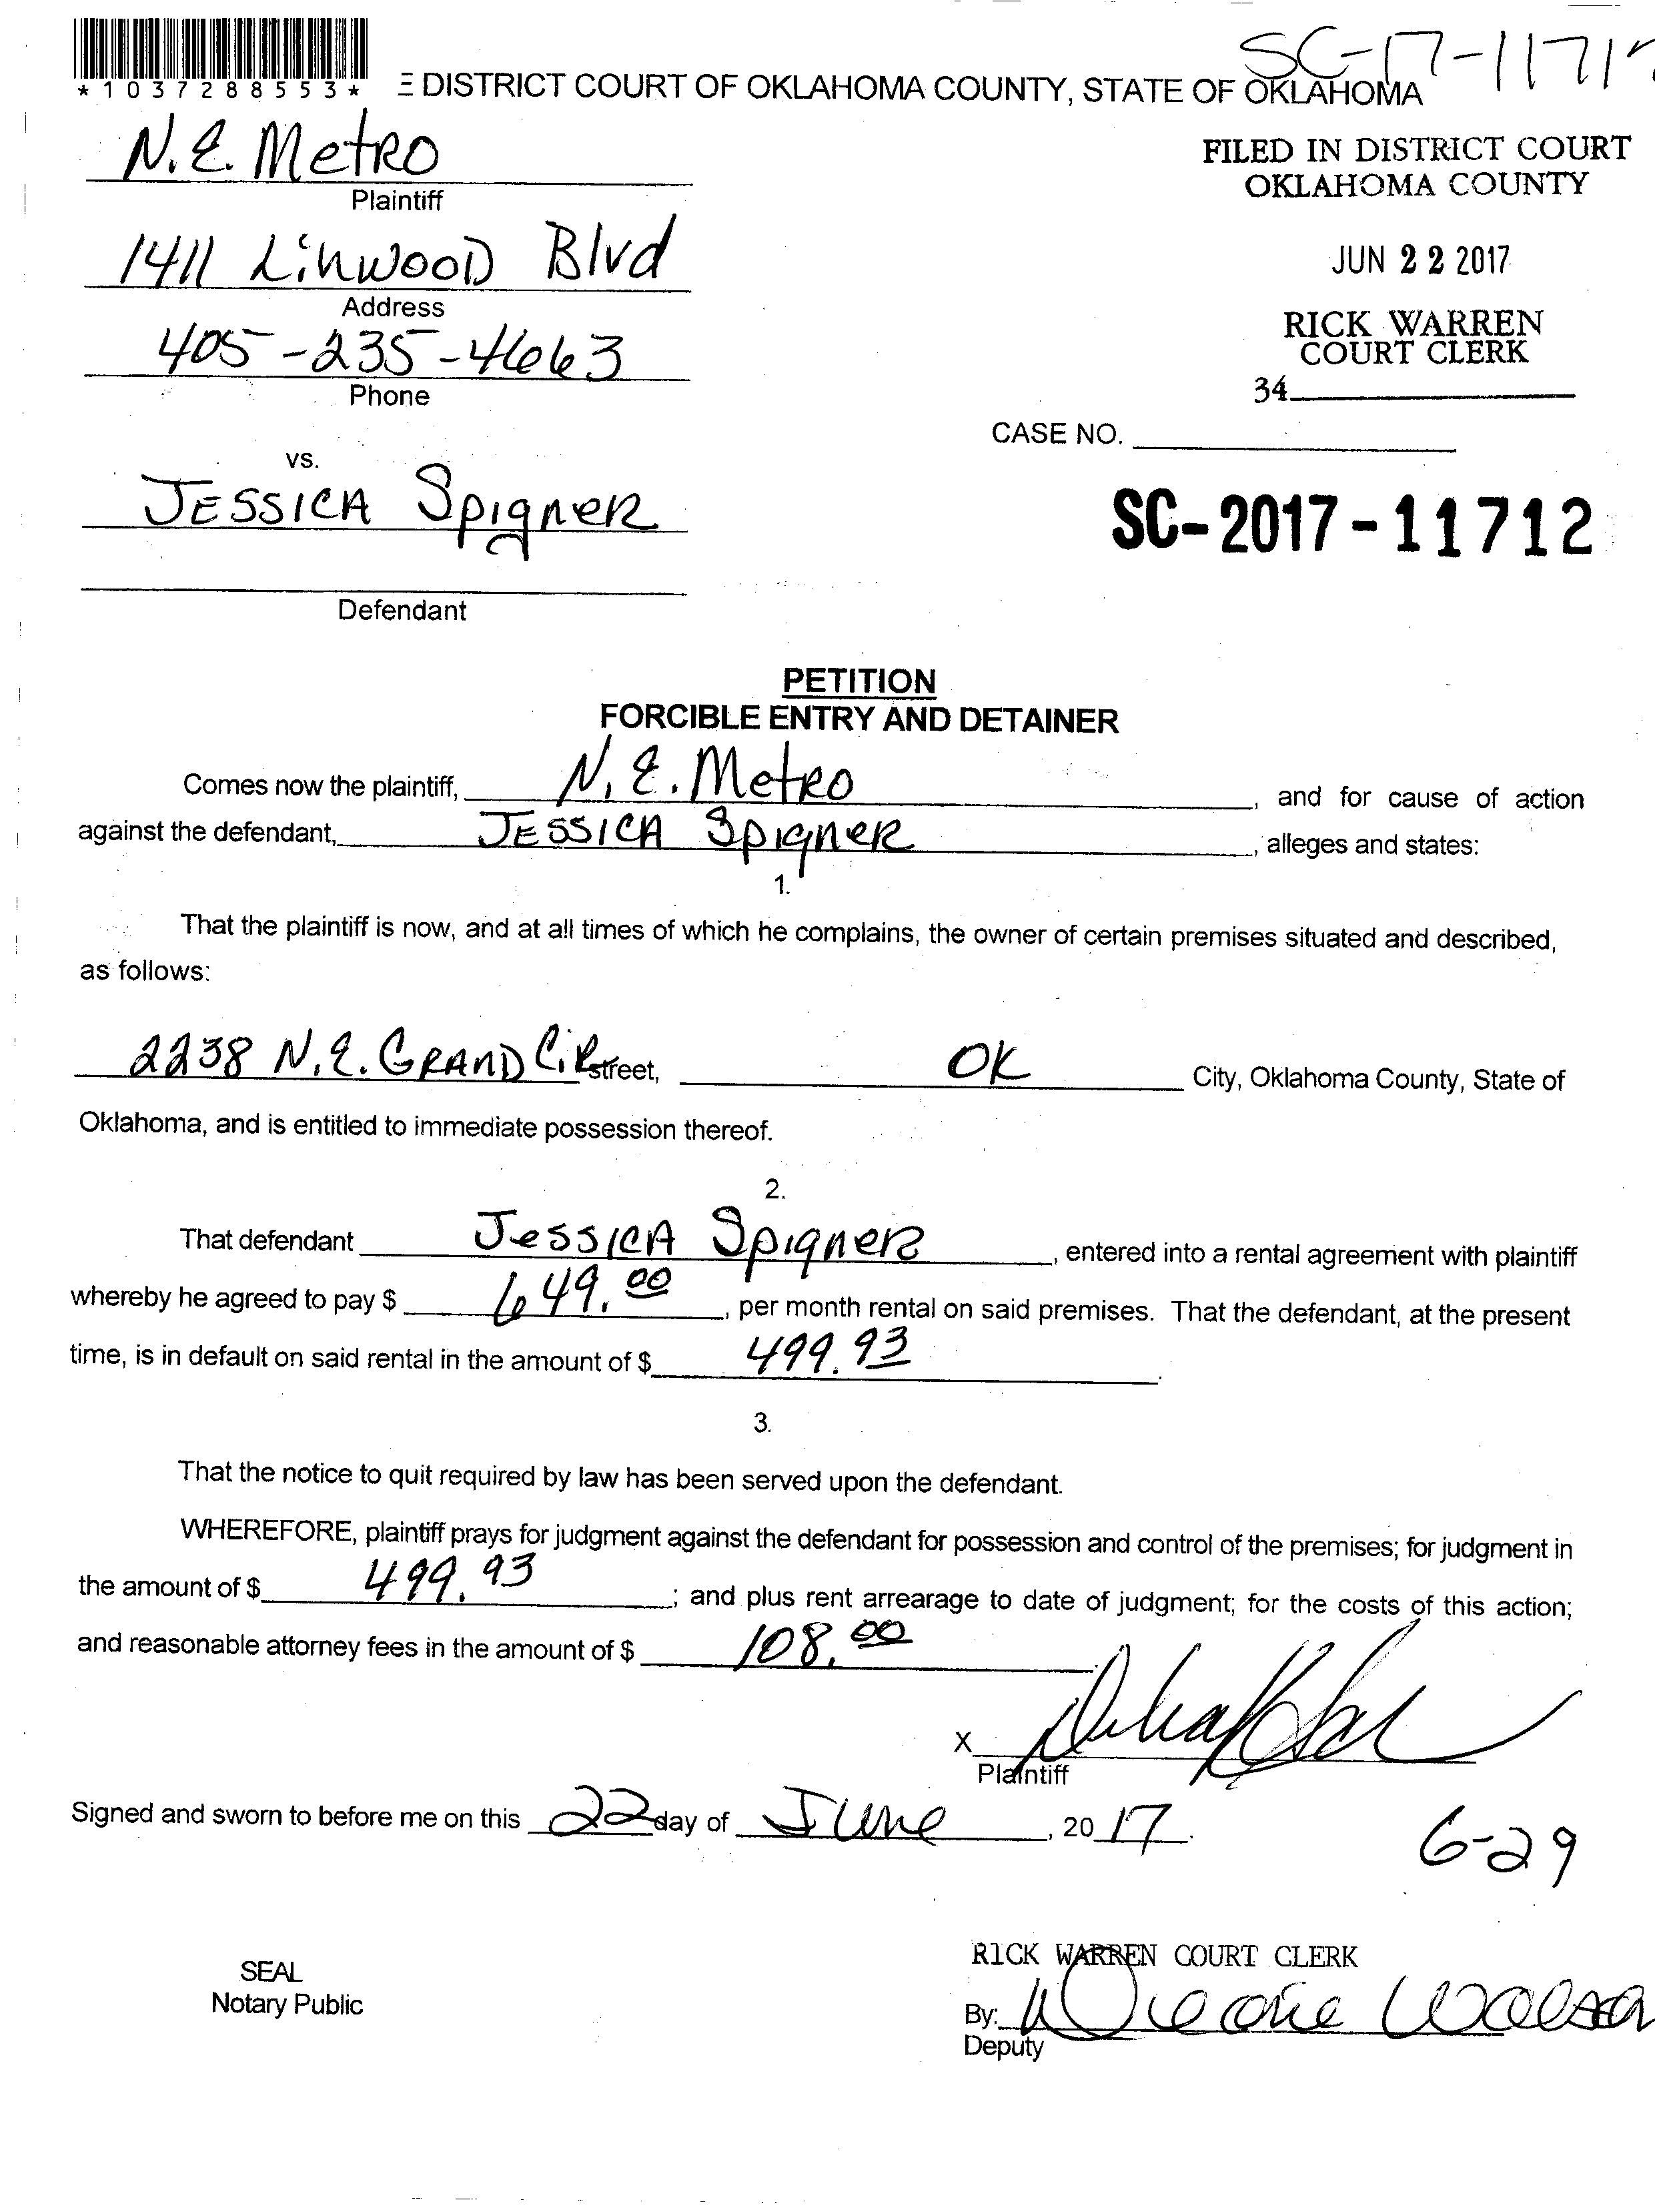 SC-17-1171
*1037288553*
E DISTRICT COURT OF OKLAHOMA COUNTY, STATE OF OKLAHOMA
N.E. Metro
Plaintiff
FILED IN DISTRICT COURT
OKLAHOMA COUNTY
1411 Linwood Blvd
Address
JUN 22 2017
405-235-4663
Phone
RICK WARREN
COURT CLERK
34
CASE NO.
vs.
JESSICA Spigner
SC-2017-11712
Defendant
PETITION
FORCIBLE ENTRY AND DETAINER
Comes now the plaintiff, N.E. Metro, and for cause of action
against the defendant, JESSICA Spigner, alleges and states:
1.
That the plaintiff is now, and at all times of which he complains, the owner of certain premises situated and described,
as follows:
2238 N.E. GRAND Cir Street, OK City, Oklahoma County, State of
Oklahoma, and is entitled to immediate possession thereof.
2.
That defendant Jessica Spigner, entered into a rental agreement with plaintiff
whereby he agreed to pay $ 649.00, per month rental on said premises. That the defendant, at the present
time, is in default on said rental in the amount of $ 499.93.
3.
That the notice to quit required by law has been served upon the defendant.
WHEREFORE, plaintiff prays for judgment against the defendant for possession and control of the premises; for judgment in
the amount of $ 499.93; and plus rent arrearage to date of judgment; for the costs of this action;
and reasonable attorney fees in the amount of $ 108.00.
X
Plaintiff
Signed and sworn to before me on this 22 day of June, 2017.
6-29
RICK WARREN COURT CLERK
SEAL
Notary Public
By:
Deputy